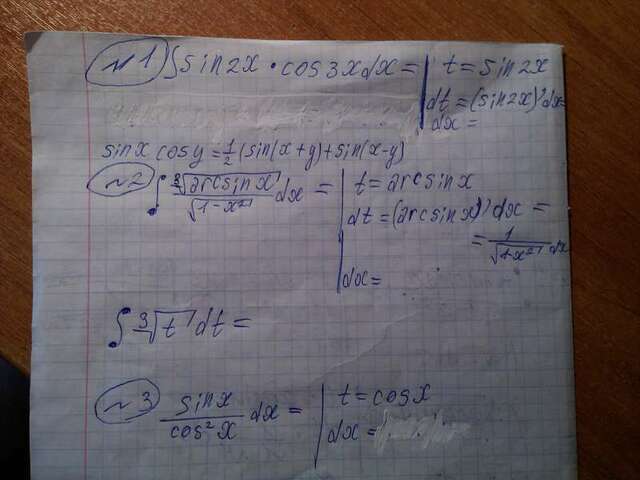 №1 ∫sin2x · cos3xdx = | t = sin2x
dt = (sin2x)'dx=
dx =
sinx cosy = 1/2 (sin(x+y)+sin(x-y)
№2 ∫ ∛arcsinx / √1-x² dx = | t = arcsinx
dt = (arcsinx)' dx =
= 1/√1-x² dx
dx =
∫ ∛t dt =
№3 sinx / cos²x dx = | t = cosx
dx =